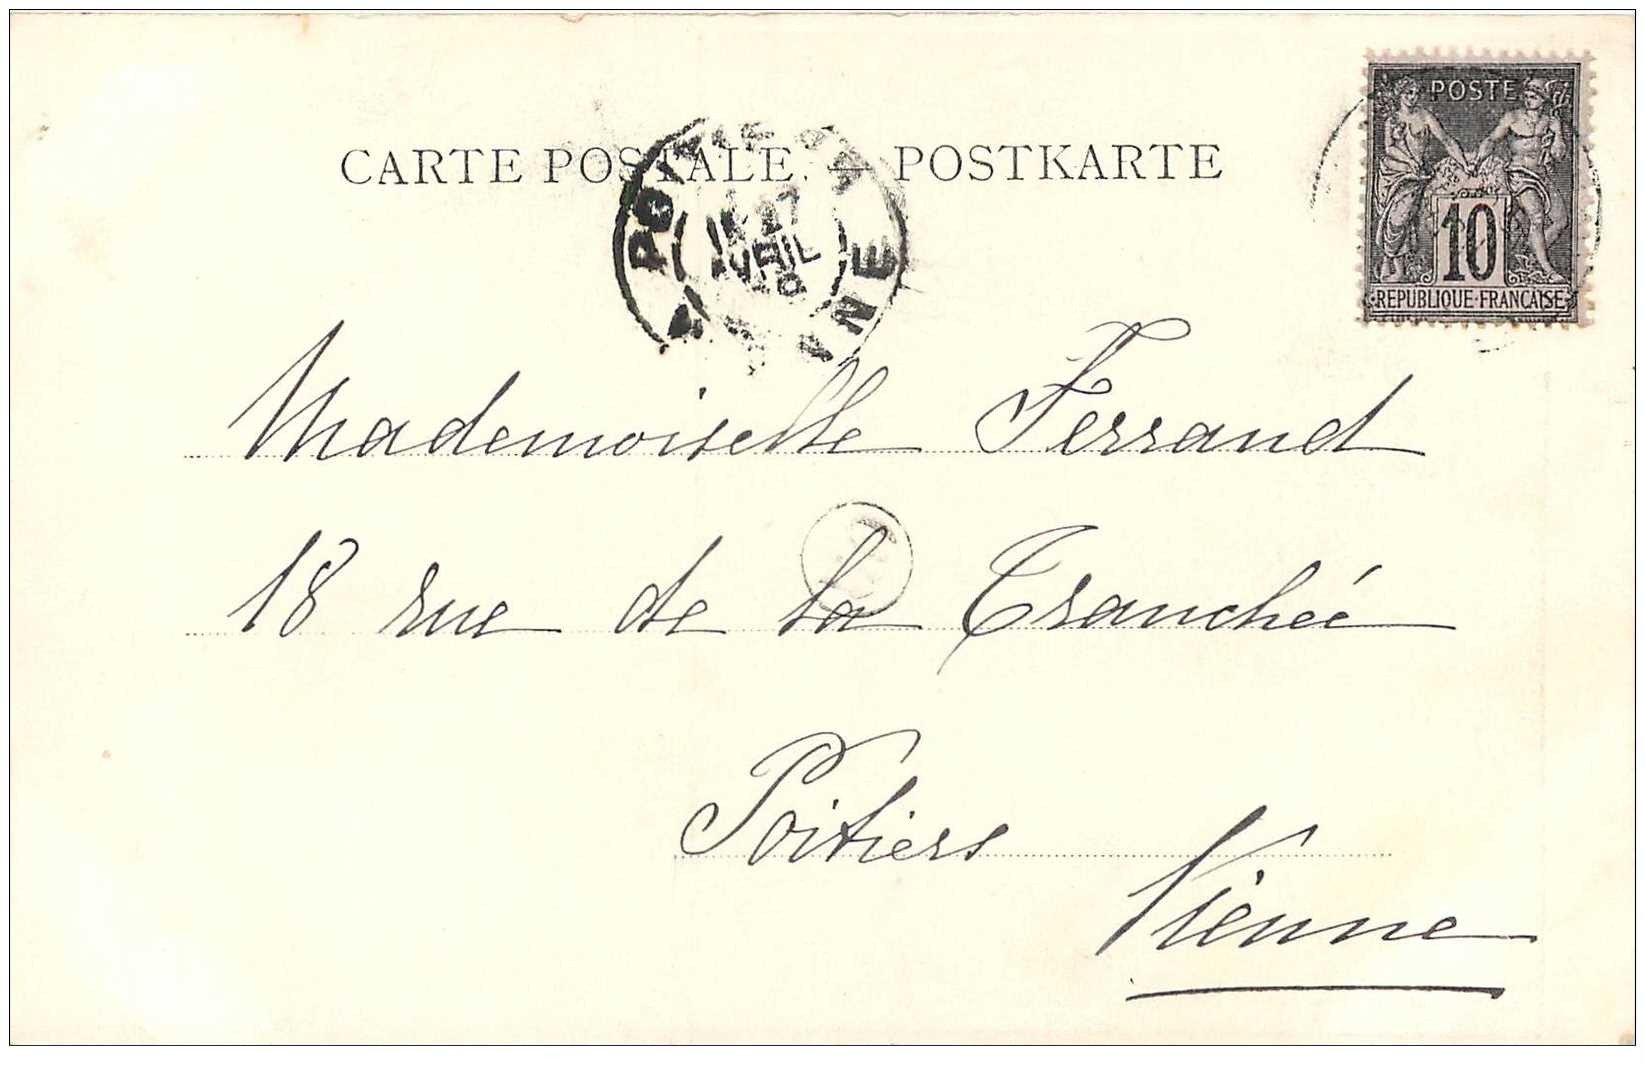 CARTE POSTALE. — POSTKARTE
POSTE
10
REPUBLIQUE FRANCAISE
27
AVRIL
Mademoiselle Ferrand
18 rue de la Tranchée
Poitiers
Vienne